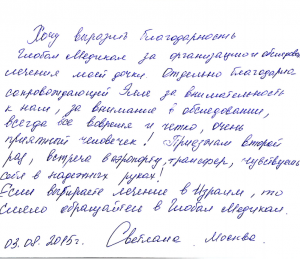 Хочу выразить благодарность
Глобал Медикал за организацию и обследов
лечения моей дочки. Отдельно благодарна
сопровождающей Элле за внимательность
к нам, за внимание в обследовании,
всегда все вовремя и четко, очень
приятный человечек! Приезжаем второй
раз, встреча в аэропорту, трансфер, чувствуешь
себя в надежных руках!
Если выбираете лечение в Израиле, то
смело обращайтесь в Глобал Медикал.
03.08.2015г. Светлана. Москва.